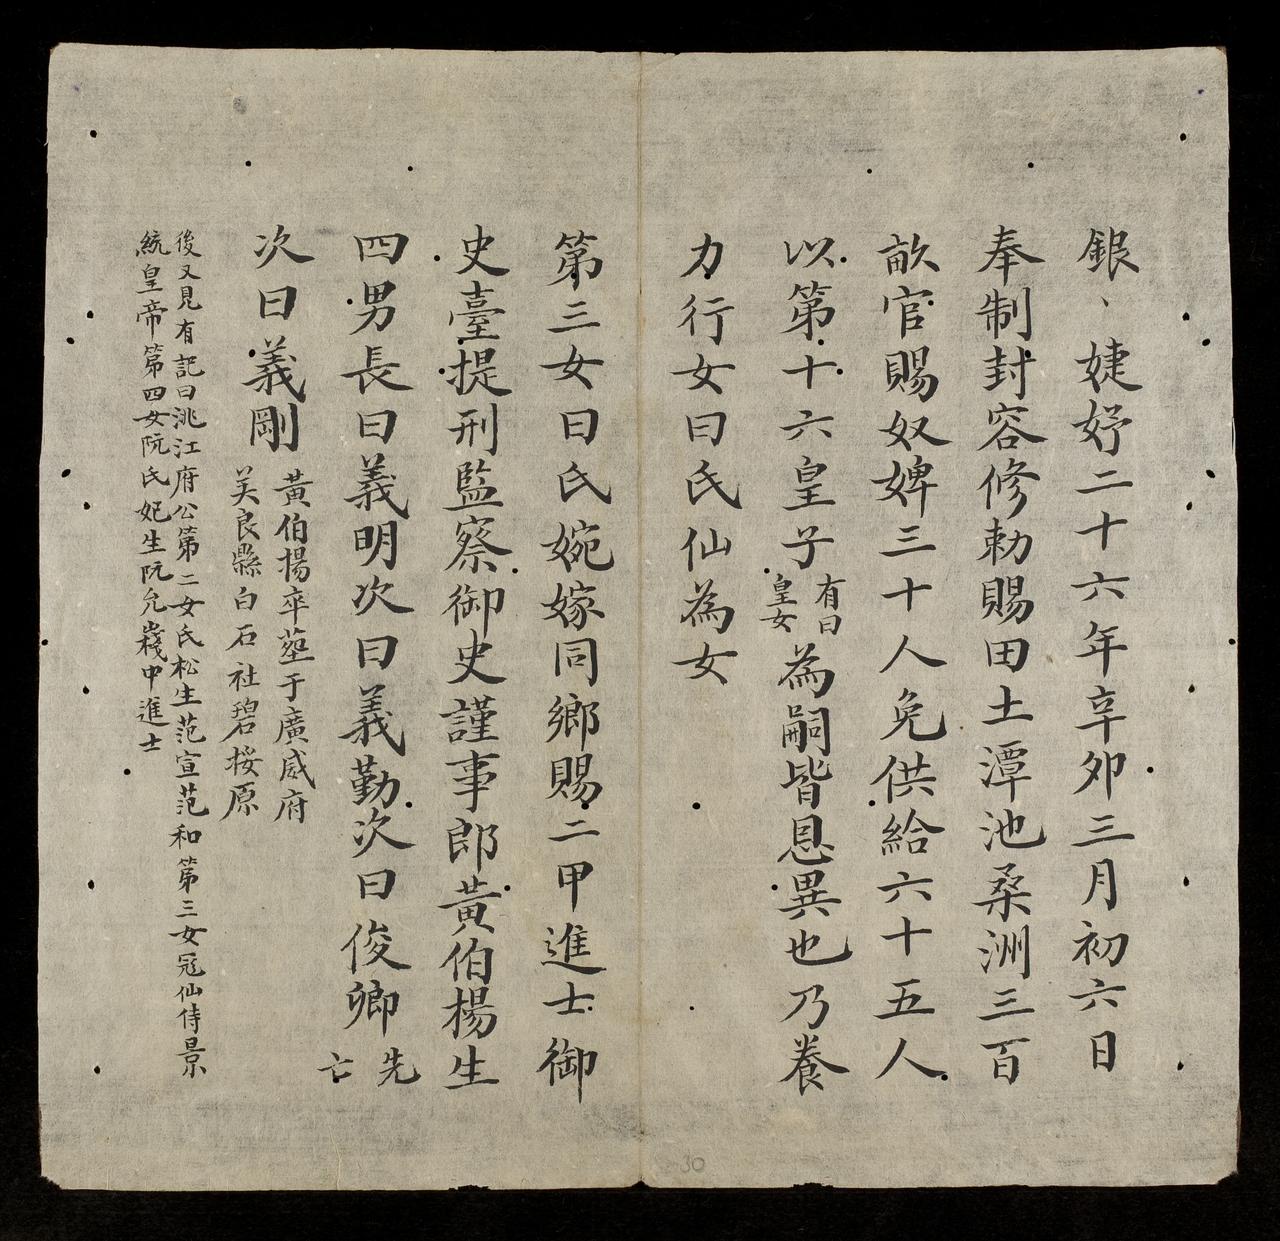 銀、婕妤二十六年辛卯三月初六日
奉制封容修勅賜田土潭池桑洲三百
畝官賜奴婢三十人免供給六十五人
以第十六皇子有曰皇女為嗣皆恩異也乃養
力行女曰氏仙為女
第三女曰氏婉嫁同鄉賜二甲進士御
史臺提刑監察御史謹事郎黃伯楊生
四男長曰義明次曰義勤次曰俊卿先亡
次曰義剛黃伯揚卒塟于廣威府
美良縣白石社碧挼原
後又見有記曰洮江府公第二女氏松生范宣范和第三女冠仙侍景
統皇帝第四女阮氏妃生阮允嶘中進士
30